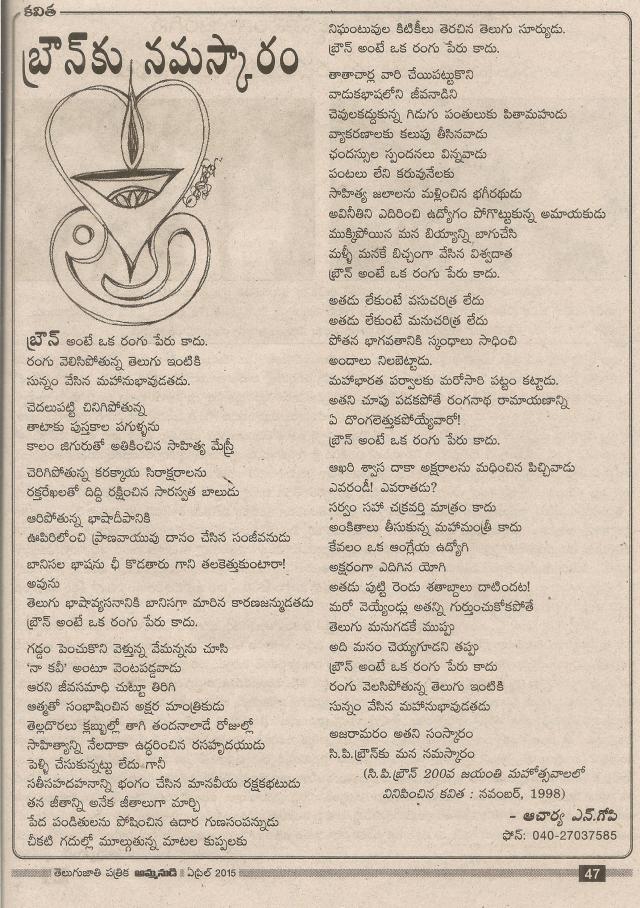 కవిత
బ్రౌన్‌కు నమస్కారం
బ్రౌన్ అంటే ఒక రంగు పేరు కాదు.
రంగు వెలిసిపోతున్న తెలుగు ఇంటికి
సున్నం వేసిన మహానుభావుడతడు.
చెదలుపట్టి చినిగిపోతున్న
తాటాకు పుస్తకాల పగుళ్ళను
కాలం జిగురుతో అతికించిన సాహిత్య మేస్త్రీ
చెరిగిపోతున్న కరక్కాయ సిరాక్షరాలను
రక్తరేఖలతో దిద్ది రక్షించిన సారస్వత బాలుడు
ఆరిపోతున్న భాషాదీపానికి
ఊపిరిలోంచి ప్రాణవాయువు దానం చేసిన సంజీవనుడు
బానిసల భాషను ఛీ కొడతారు గాని తలకెత్తుకుంటారా!
అవును
తెలుగు భాషావ్యసనానికి బానిసగా మారిన కారణజన్ముడతడు
బ్రౌన్ అంటే ఒక రంగు పేరు కాదు.
గడ్డం పెంచుకొని వెళ్తున్న వేమన్నను చూసి
'నా కవీ' అంటూ వెంటపడ్డవాడు
ఆరని జీవసమాధి చుట్టూ తిరిగి
ఆత్మతో సంభాషించిన అక్షర మాంత్రికుడు
తెల్లదొరలు క్లబ్బుల్లో తాగి తందనాలాడే రోజుల్లో
సాహిత్యాన్ని నేలదాకా ఉద్ధరించిన రసహృదయుడు
పెళ్ళి చేసుకున్నట్టు లేదు గానీ
సతీసహదహనాన్ని భంగం చేసిన మానవీయ రక్షకభటుడు
తన జీతాన్ని అనేక జీతాలుగా మార్చి
పేద పండితులను పోషించిన ఉదార గుణసంపన్నుడు
చీకటి గదుల్లో మూల్గుతున్న మాటల కుప్పలకు
నిఘంటువుల కిటికీలు తెరచిన తెలుగు సూర్యుడు.
బ్రౌన్ అంటే ఒక రంగు పేరు కాదు.
తాతాచార్ల వారి చేయిపట్టుకొని
వాడుకభాషలోని జీవనాడిని
చెవులకద్దుకున్న గిడుగు పంతులుకు పితామహుడు
వ్యాకరణాలకు కలుపు తీసినవాడు
ఛందస్సుల స్పందనలు విన్నవాడు
పంటలు లేని కరువునేలకు
సాహిత్య జలాలను మళ్లించిన భగీరథుడు
అవినీతిని ఎదిరించి ఉద్యోగం పోగొట్టుకున్న అమాయకుడు
ముక్కిపోయిన మన బియ్యాన్ని బాగుచేసి
మళ్ళీ మనకే బిచ్చంగా వేసిన విశ్వదాత
బ్రౌన్ అంటే ఒక రంగు పేరు కాదు.
అతడు లేకుంటే వసుచరిత్ర లేదు
అతడు లేకుంటే మనుచరిత్ర లేదు
పోతన భాగవతానికి స్కంధాలు సాధించి
అందాలు నిలబెట్టాడు.
మహాభారత పర్వాలకు మరోసారి పట్టం కట్టాడు.
అతని చూపు పడకపోతే రంగనాథ రామాయణాన్ని
ఏ దొంగలెత్తుకపోయ్యేవారో!
బ్రౌన్ అంటే ఒక రంగు పేరు కాదు.
ఆఖరి శ్వాస దాకా అక్షరాలను మధించిన పిచ్చివాడు
ఎవరండీ! ఎవరాతడు?
సర్వం సహా చక్రవర్తి మాత్రం కాదు
అంకితాలు తీసుకున్న మహామంత్రీ కాదు
కేవలం ఒక ఆంగ్లేయ ఉద్యోగి
అక్షరంగా ఎదిగిన యోగి
అతడు పుట్టి రెండు శతాబ్దాలు దాటిందట!
మరో వెయ్యేండ్లు అతన్ని గుర్తుంచుకోకపోతే
తెలుగు మనుగడకే ముప్పు
అది మనం చెయ్యగూడని తప్పు
బ్రౌన్ అంటే ఒక రంగు పేరు కాదు
రంగు వెలసిపోతున్న తెలుగు ఇంటికి
సున్నం వేసిన మహానుభావుడతడు
అజరామరం అతని సంస్కారం
సి.పి.బ్రౌన్‌కు మన నమస్కారం
(సి.పి.బ్రౌన్ 200వ జయంతి మహోత్సవాలలో
వినిపించిన కవిత : నవంబర్, 1998)
- ఆచార్య ఎన్.గోపి
ఫోన్: 040-27037585
తెలుగుజాతి పత్రిక అమ్మనుడి || ఏప్రిల్ 2015
47